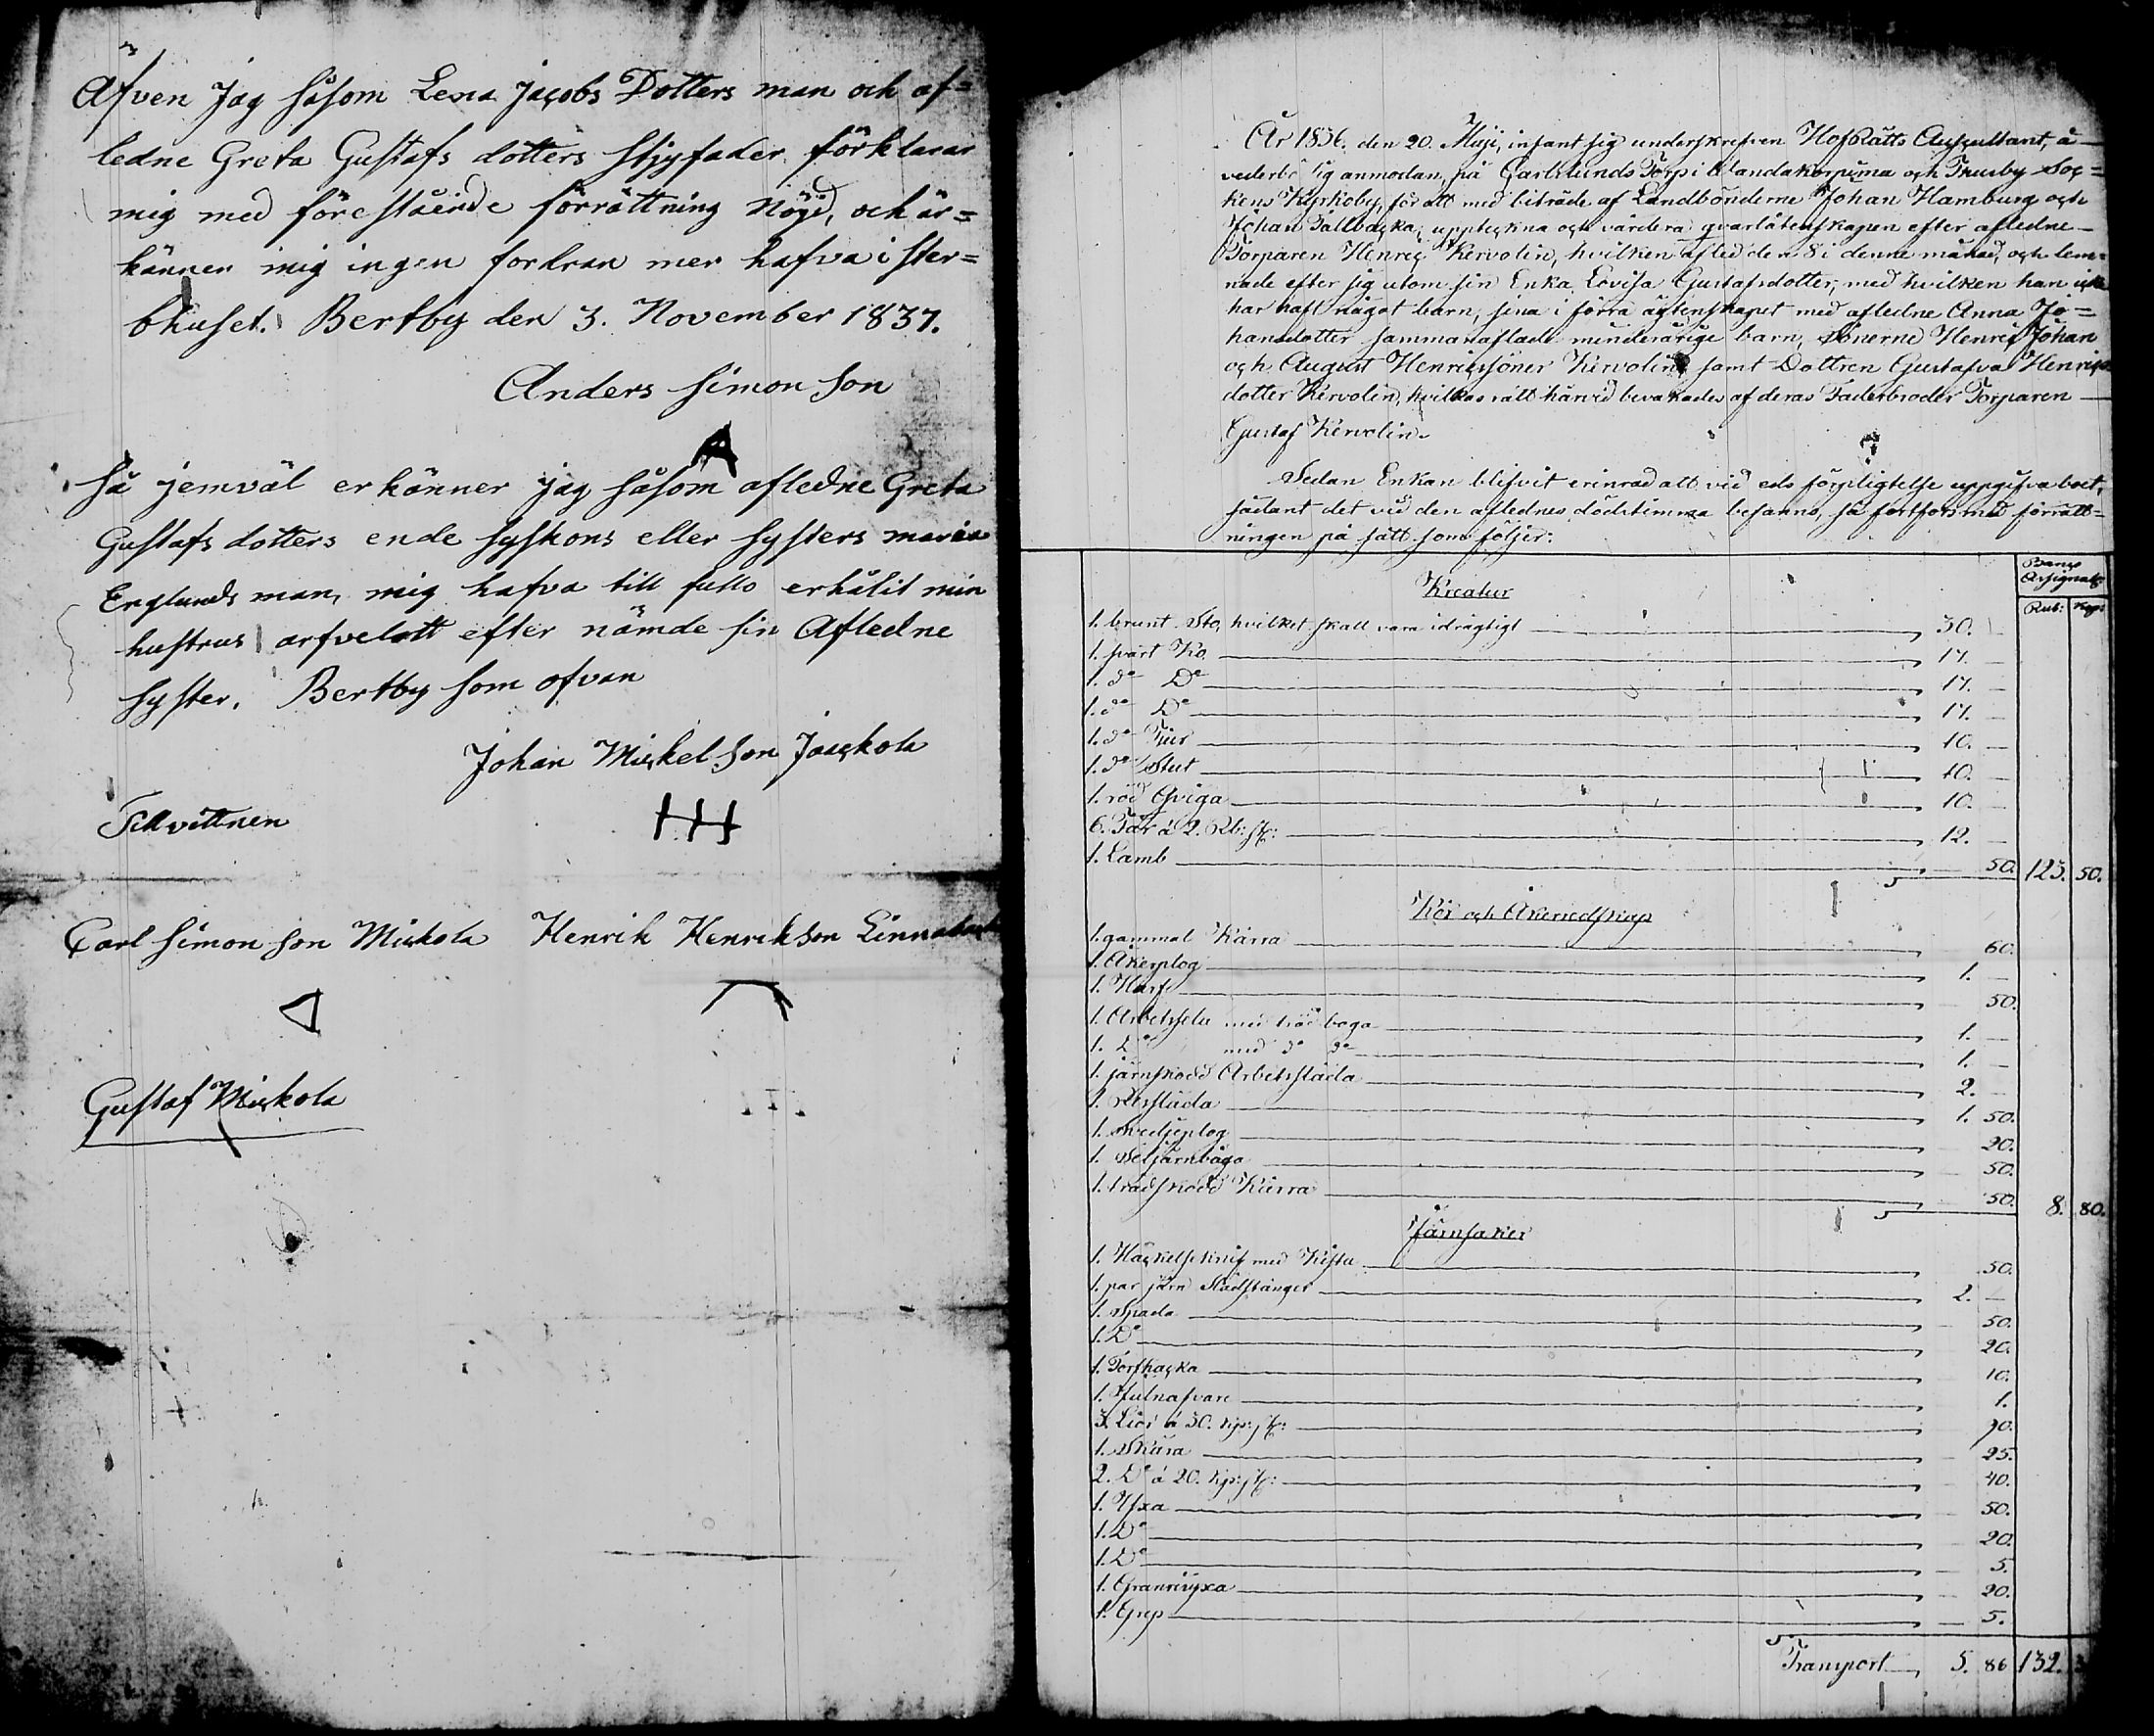 Äfven Jag såsom Lena Jacobs Dotters man och af=
ledne Greta Gustafs dotters styfader förklarar
mig med förestående förrättning Nöjd, och är=
känner mig ingen fordran mer hafva i ster=
bhuset. Bertby den 3. November 1837.
Anders Simon Son
A
Så jemväl erkänner jag såsom afledne Greta
Gustafs dotters ende syskons eller systers maria
Englunds man, mig hafva till fullo erhålit min
hustrus arfvelott efter nämde sin Afledne
syster. Bertby som ofvan
Johan Mickel Son Jaickola
Till vittnen
Carl Simon Son Mickola Henrik Henrikson
Gustaf Mickola
År 1836. den 20. Maji, infant sig underskrefven HofRätts Auscultant, å
vederbö lig anmodan, på Carlslunds Torp i och Thusby Soc=
kens Kyrkoby, för att med biträde af Landbönderne Johan Hamburg och
Johan Tallbacka, uppteckna och värdera qvarlåtenskapen efter afledne
Torparen Henric Kervolin, hvilken afled den 8 i denne månad, och lem=
nade efter sig utom sin Enka, Lovisa Gustafsdotter, med hvilken han icke
har haft något barn, sina i förra ägtenskapet med afledne Anna Jo=
hansdotter sammanaflade minderårige barn, Sönerne Henric Johan
och August Henricssöner Kervolin samt Dottren Gustafva Henrics
dotter Kervolin, hvilkas rätt härvid bevakades af deras Faderbroder Torparen
Gustaf Kervolin.
Sedan Enkan blifvit erinrad att vid eds förpligtelse uppgifva boet,
sådant det vid den aflednes dödstimma befanns, så fortfors med förrätt=
ningen på sätt som följer:
Banco Assignats
Rub: Kop:
Kreatur
1. brunt Sto, hvilket skall vara idrägtigt 30. —
1. svart Ko 17. —
1. do Do 17. —
1. do Do 17. —
1. do Tjur 10. —
1. do Stut 10. —
1. röd Qviga 10. —
6. Får á 2. Rb: st: 12. —
1. Lamb 50. 123. 50.
Kör och Åkerredskap
1. gammal Kärra 60.
1. Åkerplog 1. —
1. Harf 50.
1. Arbetssela med träd boga 1. —
1. Do med do do 1. —
1. järnskodd Arbetssläda 2. —
1. Ressläda 1. 50.
1. Svedjeplog 20.
1. 50.
1. trädskodd Kärra 50. 8. 80.
Järnsaker
1. Hackelseknif med Kista 50.
1. par järn 2. —
1. Spada 50.
1. Do 20.
1. Torfhacka 10.
1. Hjulnafvare 1.
3. Liar á 30. kop: st: 90.
1. Skära 25.
2. Do á 20. kop: st: 40.
1. Yxa 50.
1. Do 20.
1. Do 5.
1. Granrisyxa 20.
1. Grep 5.
Transport 5. 86 132.